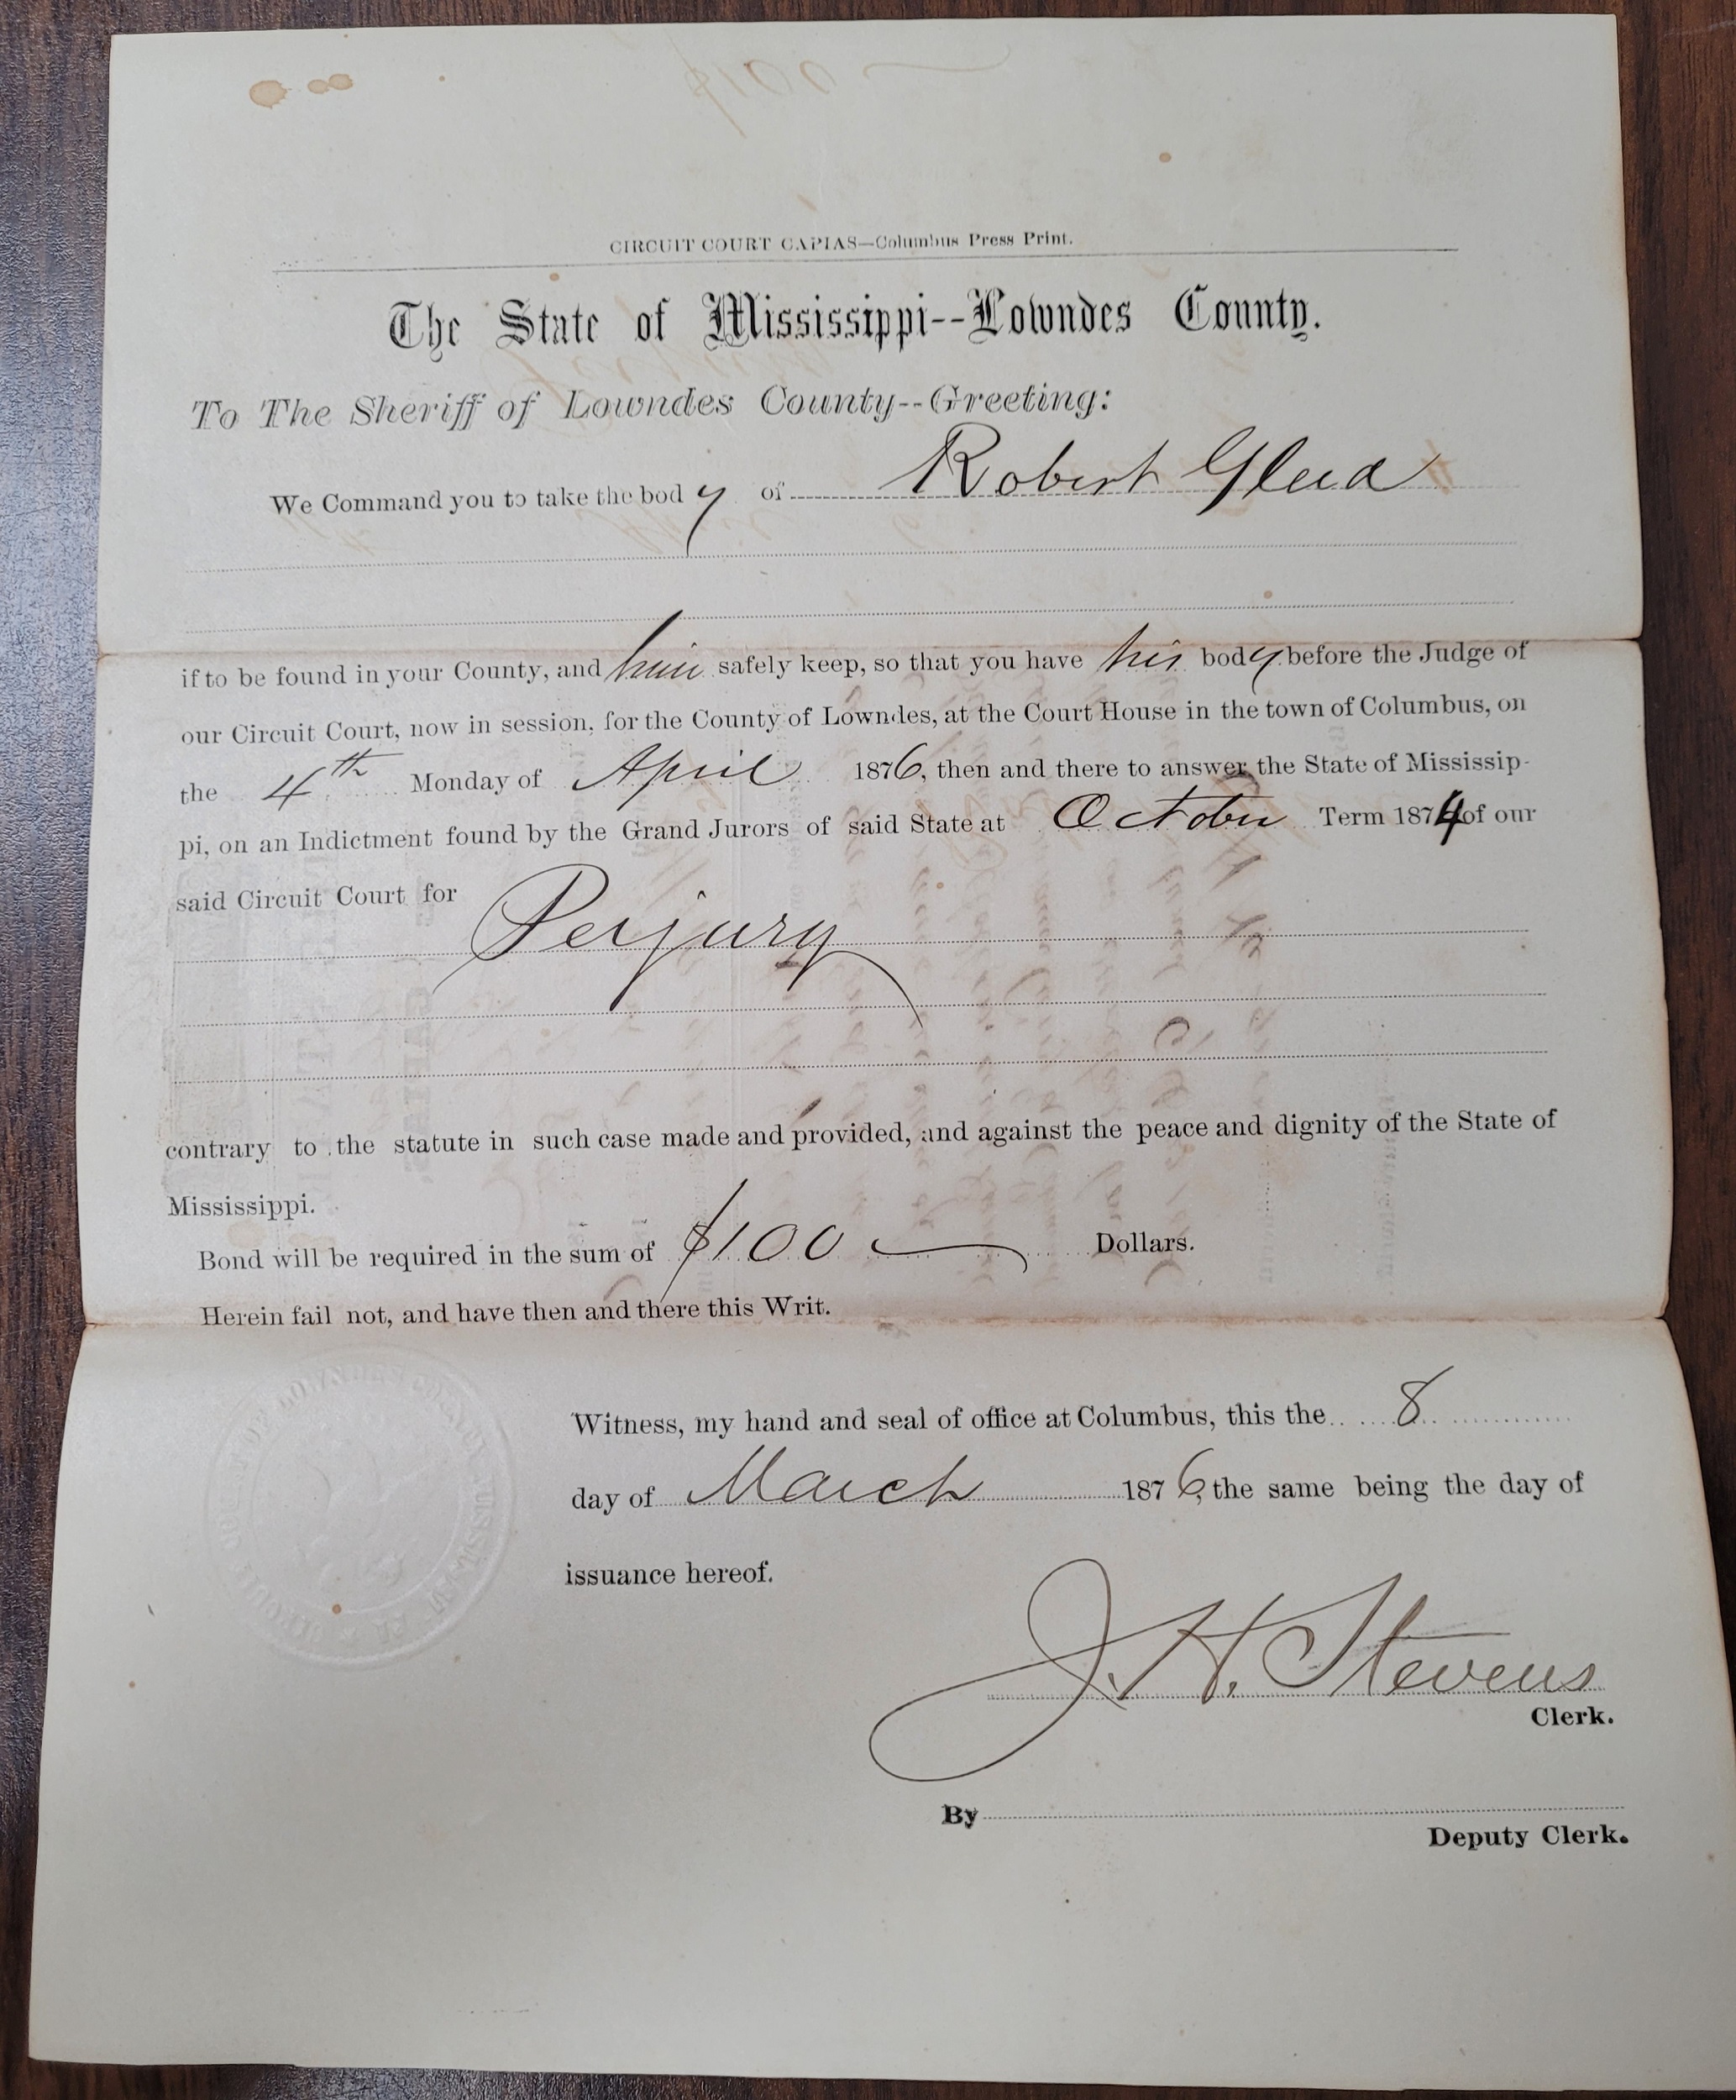 CIRCUIT COURT CAPIAS—Columbus Press Print.
The State of Mississippi--Lowndes County.
To The Sheriff of Lowndes County--Greeting:
We Command you to take the body of Robert Gleed
if to be found in your County, and him safely keep, so that you have his body before the Judge of
our Circuit Court, now in session, for the County of Lowndes, at the Court House in the town of Columbus, on
the 4th Monday of April 1876, then and there to answer the State of Mississip-
pi, on an Indictment found by the Grand Jurors of said State at October Term 1874 of our
said Circuit Court for
Perjury
contrary to the statute in such case made and provided, and against the peace and dignity of the State of
Mississippi.
Bond will be required in the sum of $100 Dollars.
Herein fail not, and have then and there this Writ.
Witness, my hand and seal of office at Columbus, this the 8
day of March 1876, the same being the day of
issuance hereof.
J. H. Stevens
Clerk.
By
Deputy Clerk.